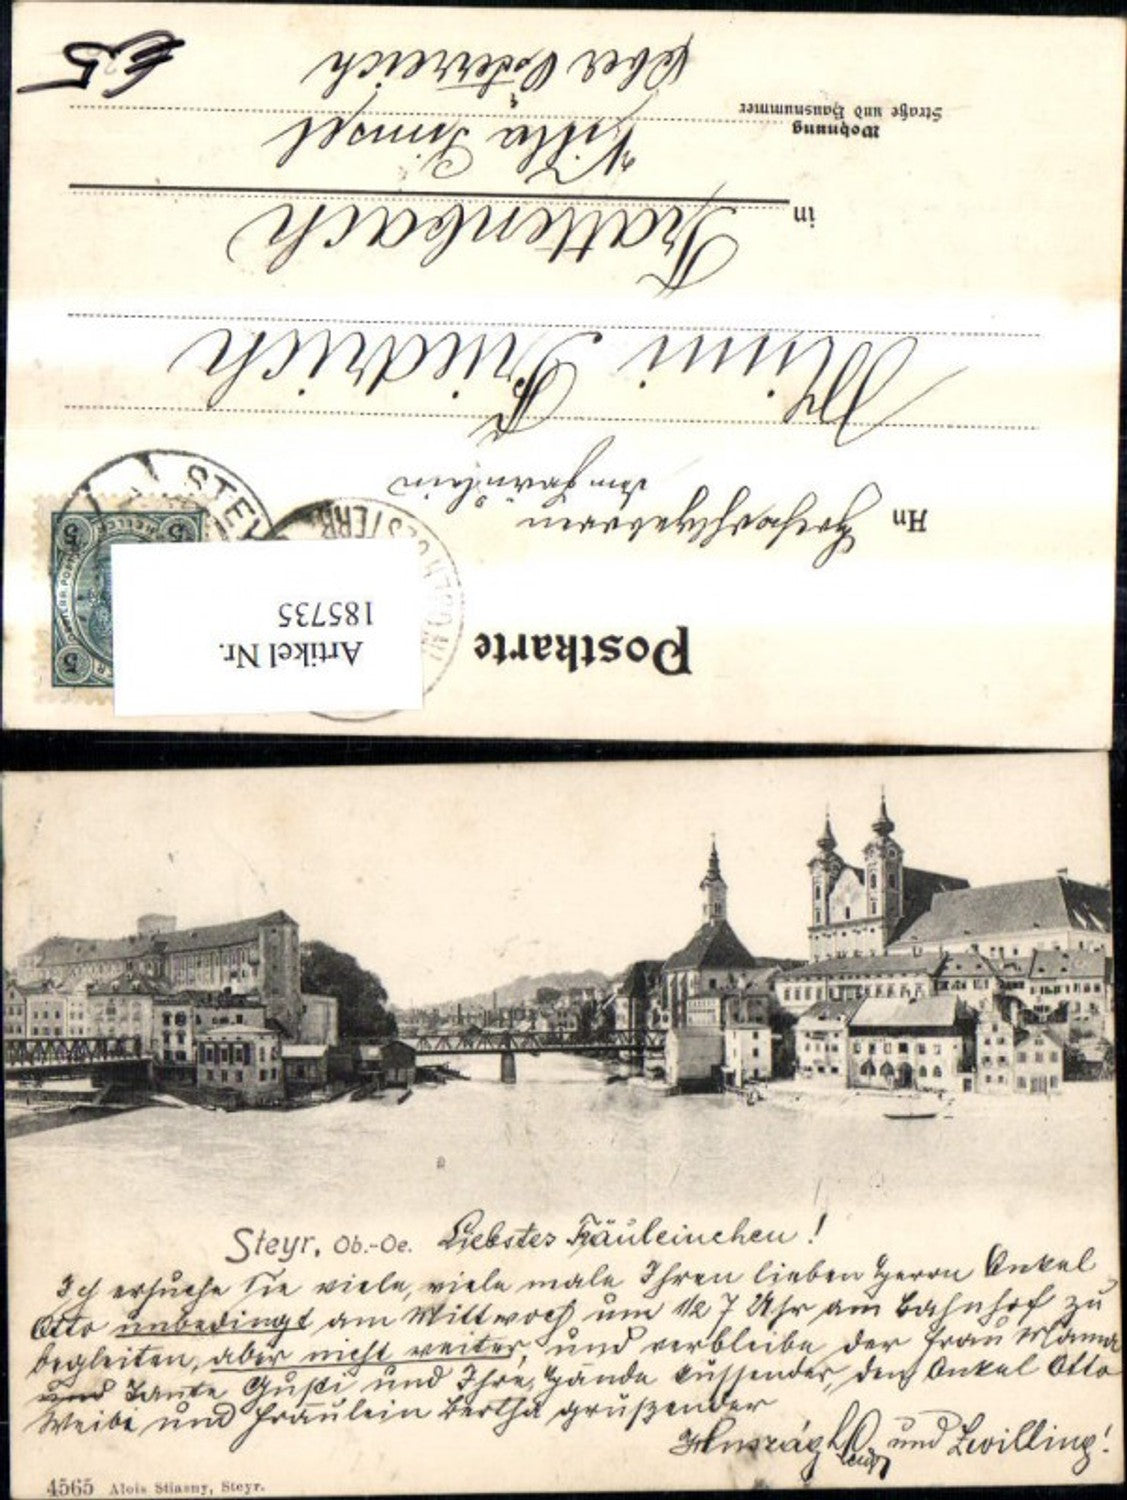 Postkarte
Artikel Nr.
185735
STEY
Hn Hochwohlgeboren
dem Fräulein
Mimi Friedrich
in Trattenbach
Wohnung
Straße und Hausnummer
Villa
Ober Österreich
€5
Steyr, Ob.-Oe. Liebstes Fräuleinchen!
Ich ersuche Sie viele, viele male Ihren lieben Herrn Onkel
Otto unbedingt am Mittwoch um 1/2 7 Uhr am Bahnhof zu
begleiten, aber nicht weiter, und verbleibe der Frau Mama
und Tante Gusti und Ihre Hände küssender, den Onkel Otto
Weibi und Fräulein Bertha grüßender
und Zwilling!
4565 Alois Stiasny, Steyr.